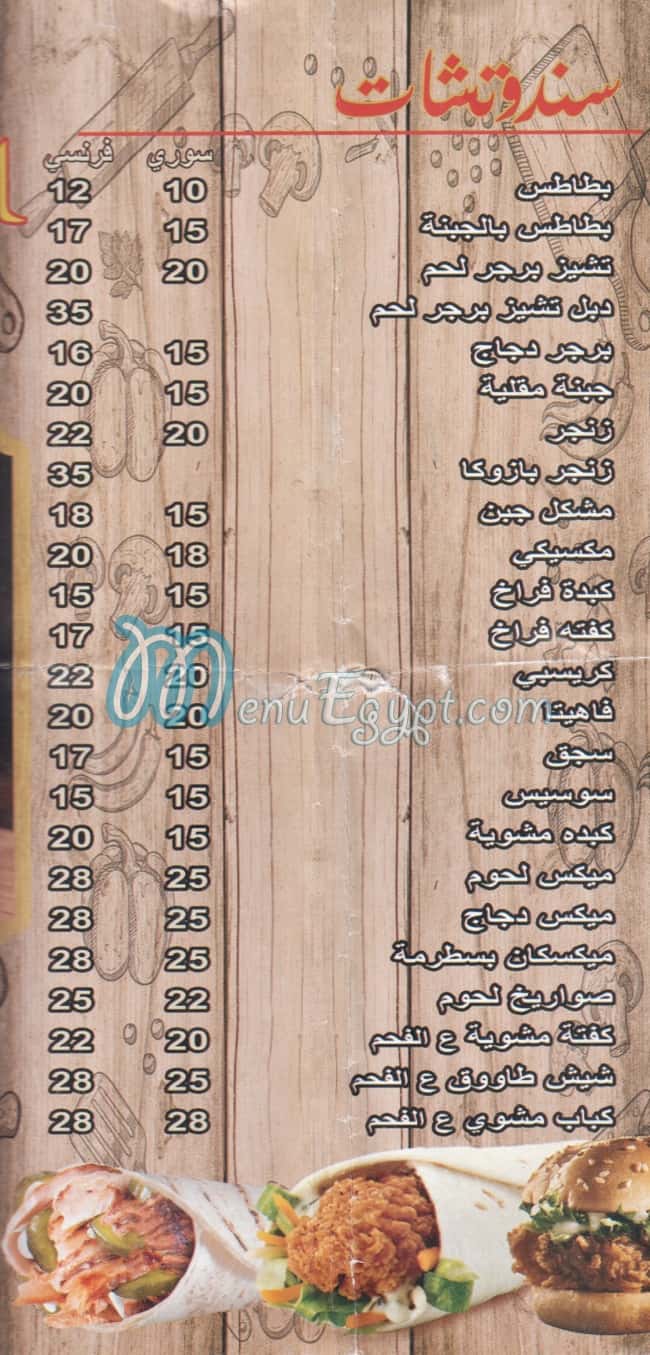 سندوتشات
سوري فرنسي
بطاطس 10 12
بطاطس بالجبنة 15 17
تشيز برجر لحم 20 20
دبل تشيز برجر لحم 35
برجر دجاج 15 16
جبنة مقلية 15 20
زنجر 20 22
زنجر بازوكا 35
مشكل جبن 15 18
مكسيكي 18 20
كبدة فراخ 15 15
كفته فراخ 15 17
كريسبي 20 22
فاهيتا 20 20
MenuEgypt.com
سجق 15 17
سوسيس 15 15
كبده مشوية 15 20
ميكس لحوم 25 28
ميكس دجاج 25 28
ميكسكان بسطرمة 25 28
صواريخ لحوم 22 25
كفتة مشوية ع الفحم 20 22
شيش طاووق ع الفحم 25 28
كباب مشوي ع الفحم 28 28